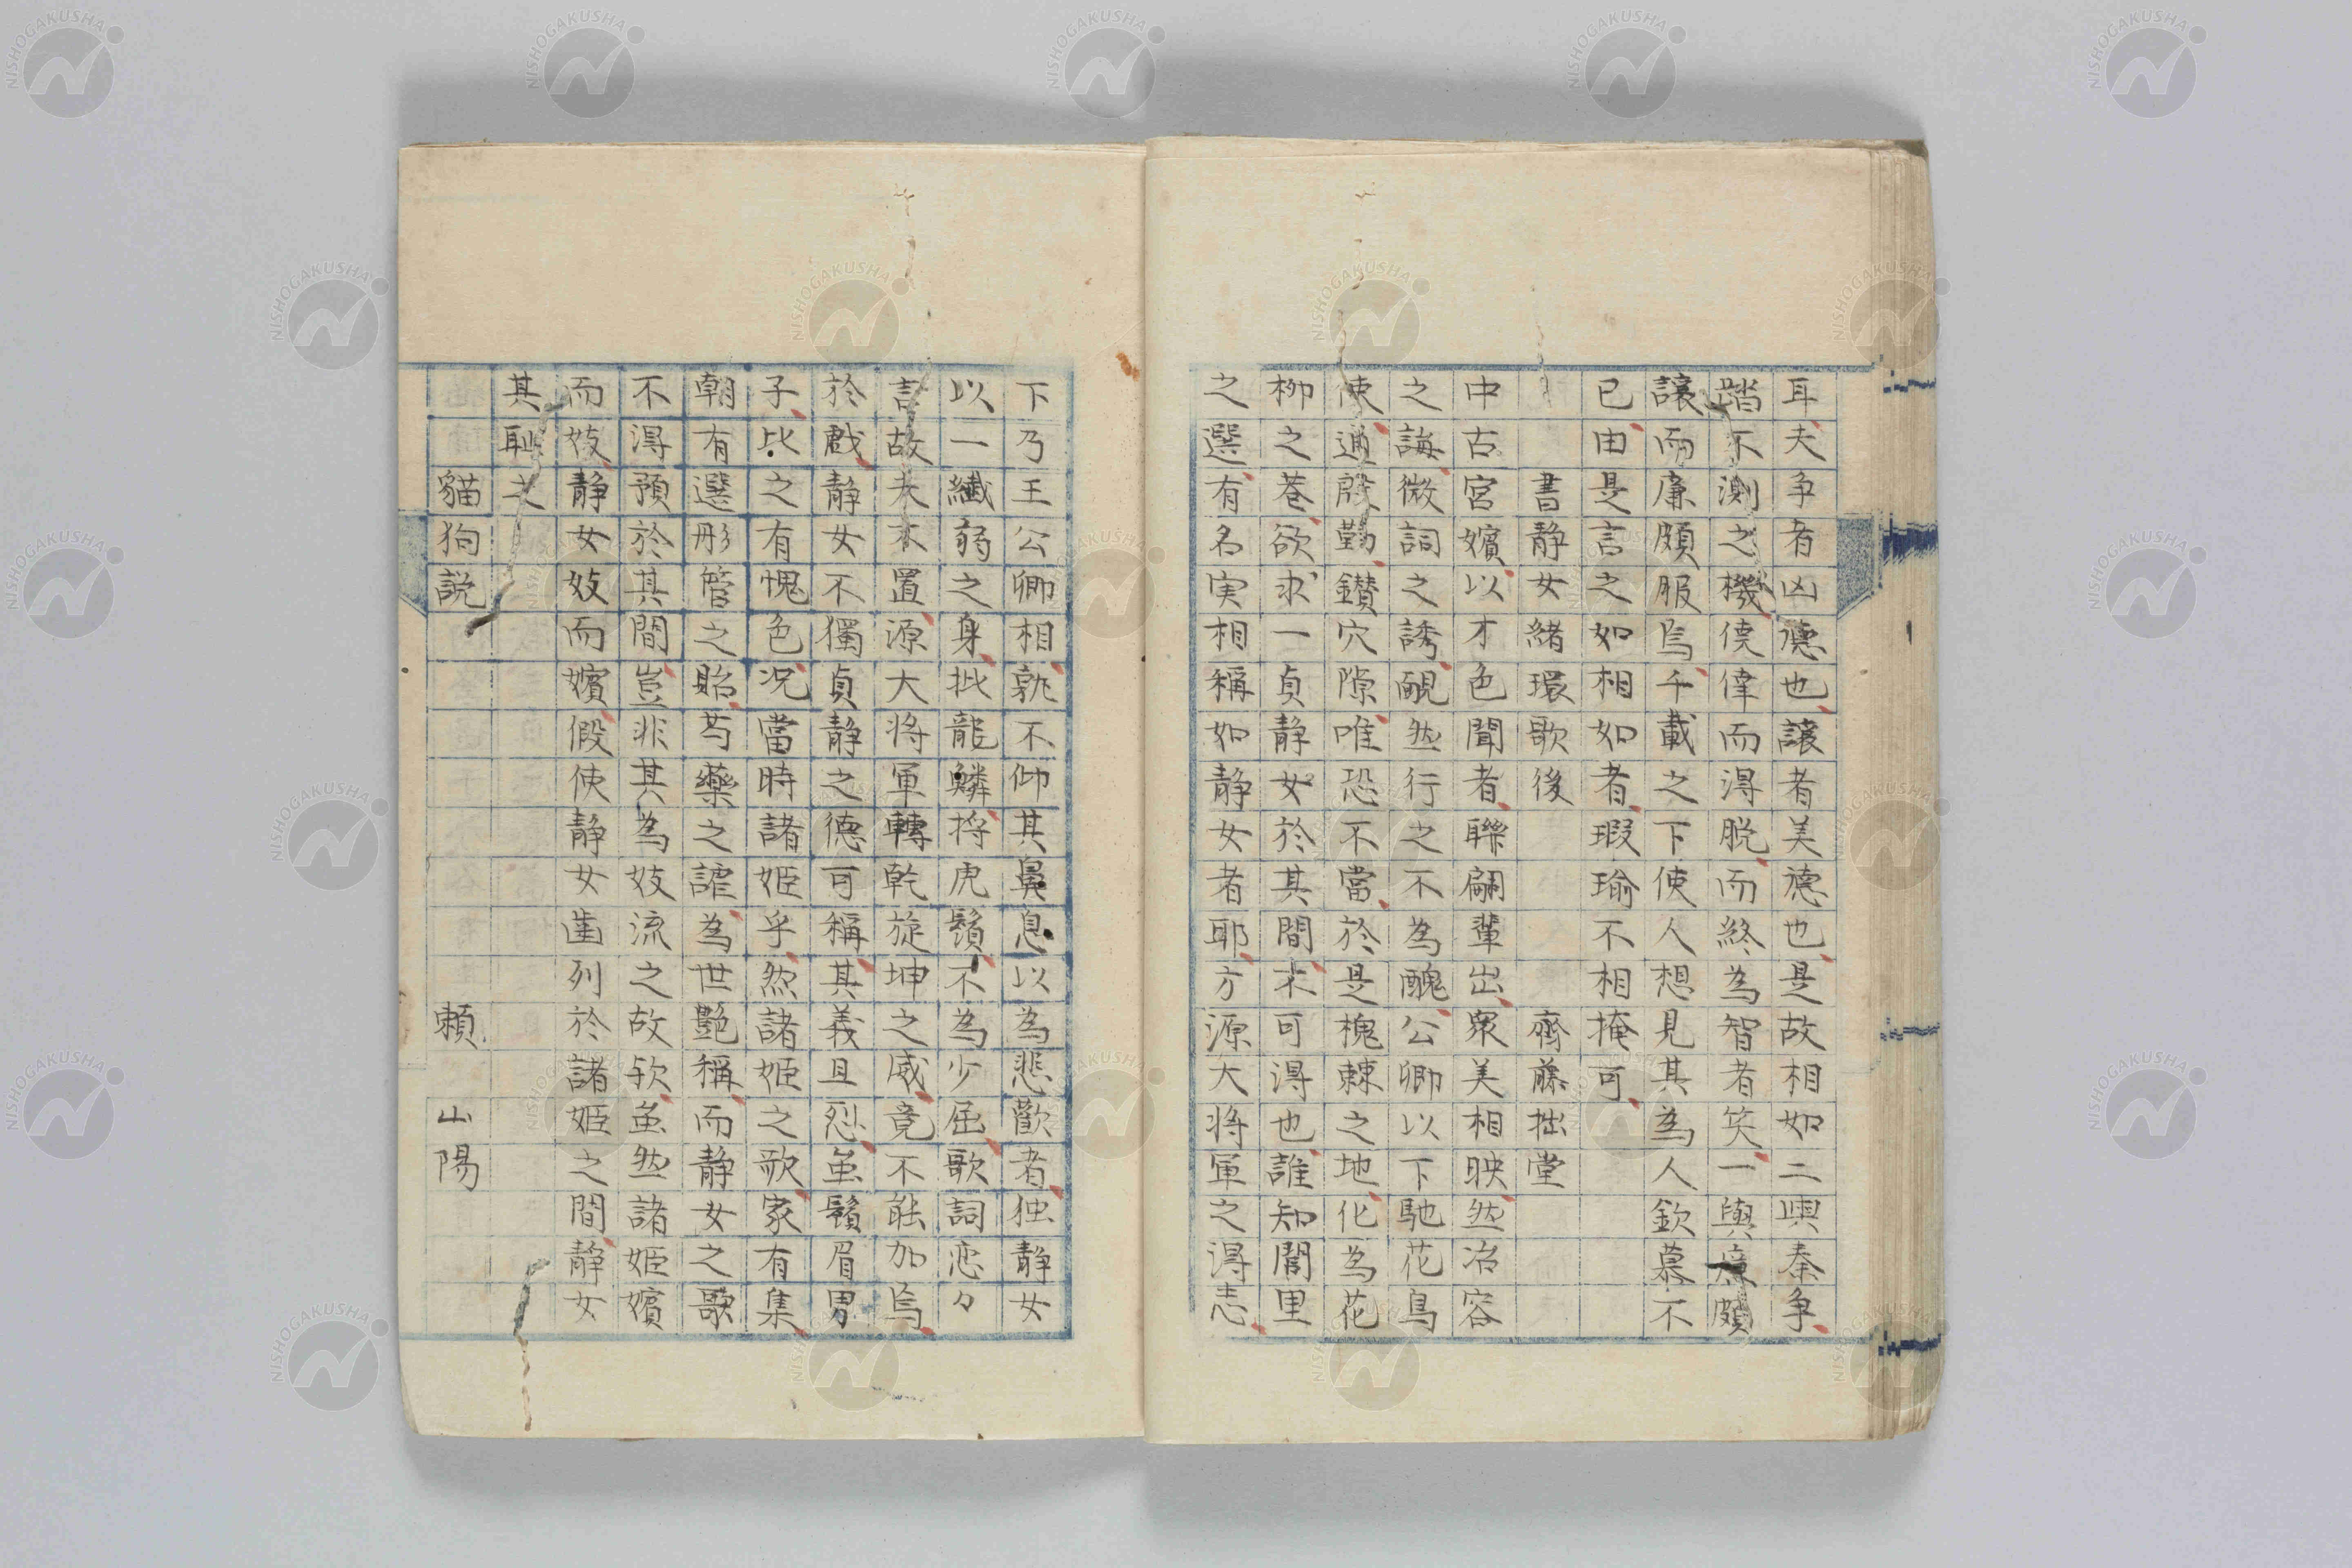 耳夫争者凶徳也譲者美徳也是故相如二與秦争
踏不測之機僥倖而得脱而終為智者笑一與廉頗
譲而廉頗服焉千載之下使人想見其為人欽慕不
已由是言之如相如者瑕瑜不相掩可
書静女緒環歌後 齊藤拙堂
中古宮嬪以才色聞者聯翩輩出衆美相映然冶容
之誨微詞之誘靦然行之不為醜公卿以下馳花鳥
使通殷勤鑚穴隙唯恐不當於是槐棘之地化為花
柳之巷欲求一貞静女於其間末可得也誰知閭里
之選有名実相稱如静女者耶方源大将軍之得志
下乃王公卿相孰不仰其鼻息以為悲歡者独静女
以一繊弱之身批龍鱗捋虎鬚不為少屈歌詞恋々
言故夫不置源大将軍轉乾旋坤之威竟不能加焉
於戯静女不獨貞静之德可稱其義且烈虽鬚眉男
子比之有愧色况當時諸姫乎然諸姫之歌家有集
朝有選彤管之貽芍藥之謔為世艶稱而静女之歌
不得預於其間豈非其為妓流之故欤虽然諸姫嬪
而妓静女妓而嬪假使静女歯列於諸姫之間静女
其恥之
貓狗説 頼山陽